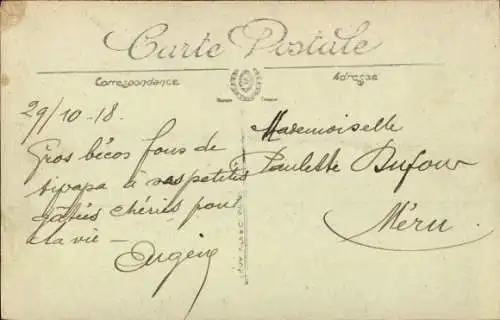 Carte Postale
Correspondance
Adresse
29/10-18.
Gros bécos fous de
tipapa à sos petites
gâtées chéries pour
la vie -
Eugène
Mademoiselle
Paulette Dufour
Méru